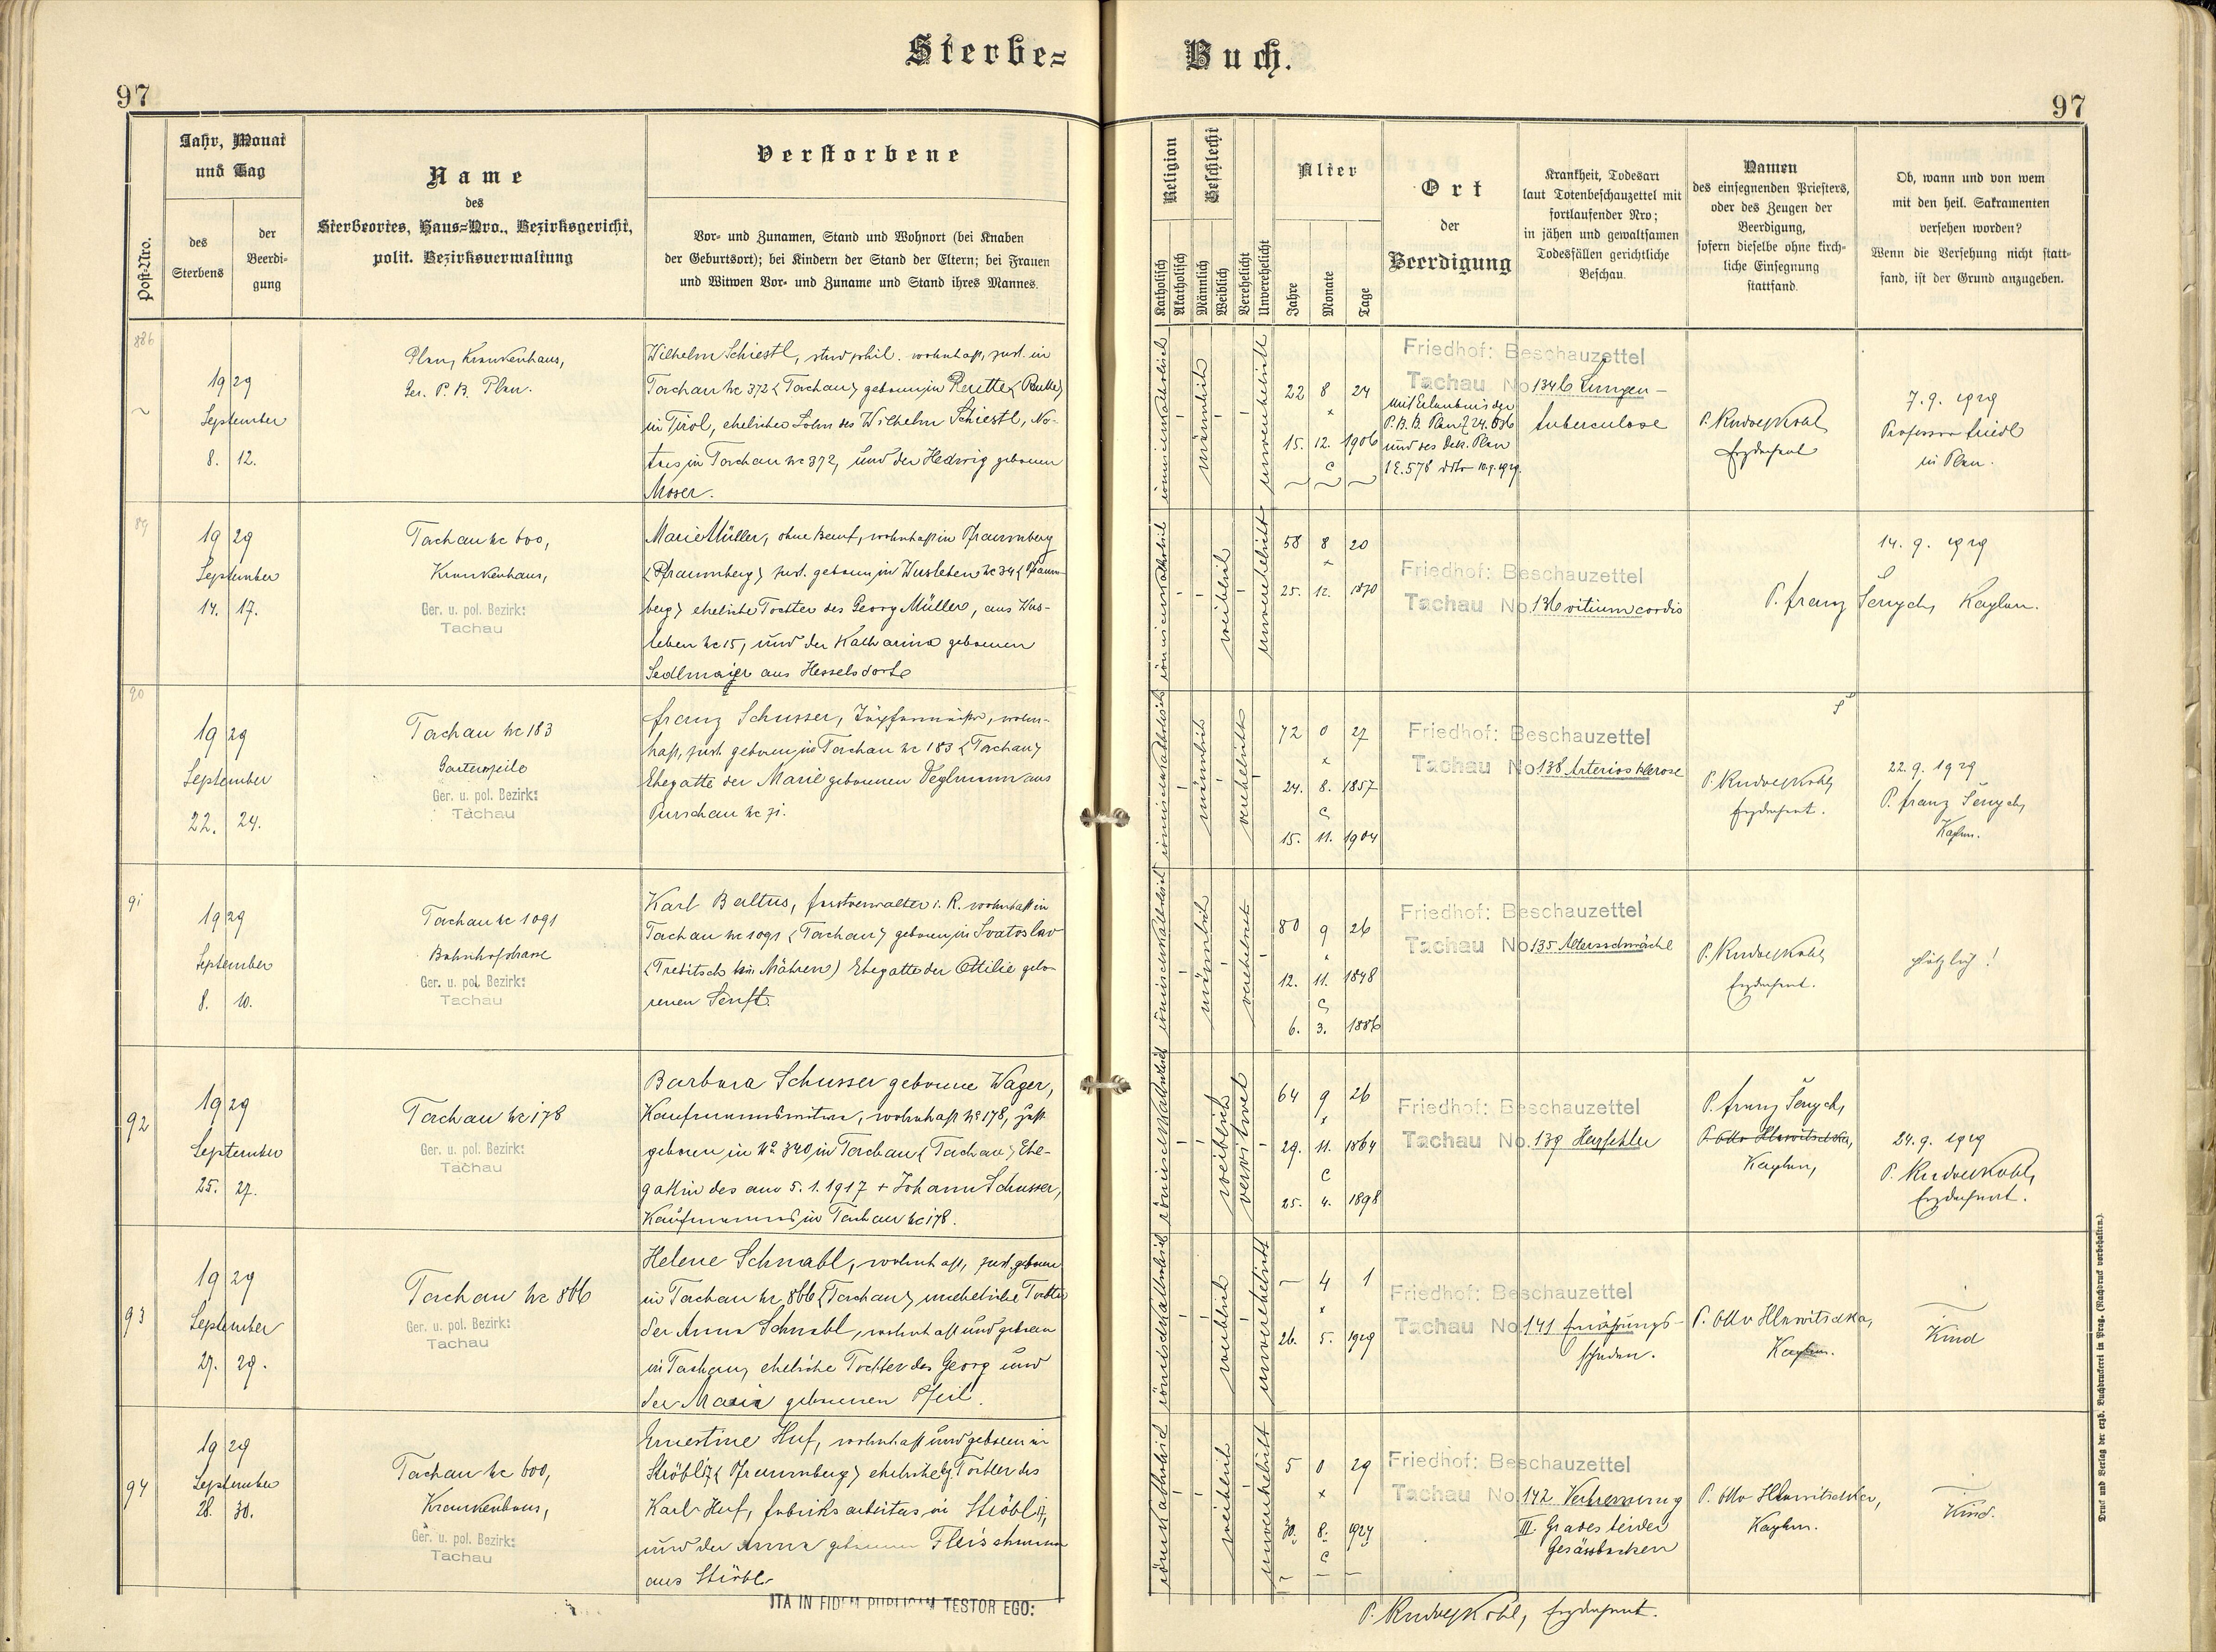 Sterbe=
Buch.
97
97
Post-Nro.
Jahr, Monat
und Tag
des
Sterbens
der
Beerdi-
gung
Name
des
Sterbeortes, Haus=Nro., Bezirksgericht,
polit. Bezirksverwaltung
Verstorbene
Vor- und Zunamen, Stand und Wohnort (bei Knaben
der Geburtsort); bei Kindern der Stand der Eltern; bei Frauen
und Witwen Vor- und Zuname und Stand ihres Mannes.
Religion
Katholisch
Akatholisch
Geschlecht
Männlich
Weiblich
Verehelicht
Unverehelicht
Alter
Jahre
Monate
Tage
Ort
der
Beerdigung
Krankheit, Todesart
laut Totenbeschauzettel mit
fortlaufender Nro;
in jähen und gewaltsamen
Todesfällen gerichtliche
Beschau.
Namen
des einsegnenden Priesters,
oder des Zeugen der
Beerdigung,
sofern dieselbe ohne kirch-
liche Einsegnung
stattfand.
Ob, wann und von wem
mit den heil. Sakramenten
versehen worden?
Wenn die Versehung nicht statt-
fand, ist der Grund anzugeben.
886
1929
September
8. 12.
Plan, Krankenhaus,
Ger. P. B. Plan.
Wilhelm Schiestl, stud phil. wohnhaft, zust. in
Tachau Nc 372 (Tachau) geboren in Reutte (Reutte)
in Tirol, ehelicher Sohn des Wilhelm Schiestl, No-
tars in Tachau Nc 372, und der Hedwig geborenen
Moser.
römischkatholisch
männlich
unverehelicht
22 8 24
*
15. 12. 1906
Friedhof: Beschauzettel
Tachau No 134b Lungen-
tuberculose
mit Erlaubnis der
P. B. B. Plan Z 24.636
und des Dek. Plan
1 E. 578 dto 10.9.1929.
P. Rudolf Kohl
Erzdechant
7. 9. 1929
Professor Friedl
in Plan.
89
1929
September
14. 17.
Tachau Nc 600,
Krankenhaus,
Ger. u. pol. Bezirk:
Tachau
Marie Müller, ohne Beruf, wohnhaft in Pfraumberg
(Pfraumberg) zust. geboren in Wusleben Nc 34 (Pfraum-
berg) eheliche Tochter des Georg Müller, aus Wus-
leben Nc 15, und der Katharina geborenen
Sedlmaier aus Hesselsdorf
römischkatholisch
weiblich
unverehelicht
58 8 20
*
25. 12. 1870
Friedhof: Beschauzettel
Tachau No. 136 vitium cordis
P. Franz Senych, Kaplan.
14. 9. 1929
90
1929
September
22. 24.
Tachau Nc 183
Gartenzeile
Ger. u. pol. Bezirk:
Tachau
Franz Schusser, wohn-
haft, zust. geboren in Tachau Nc 183 (Tachau)
Ehegatte der Marie geborenen Veglmann aus
Purschau Nc 71.
römischkatholisch
männlich
verehelicht
72 0 27
*
24. 8. 1857
15. 11. 1904
Friedhof: Beschauzettel
Tachau No. 138 Arteriosklerose
P. Rudolf Kohl,
Erzdechant.
22. 9. 1929
P. Franz Senych,
Kaplan.
91
1929
September
8. 10.
Tachau Nc 1091
Bahnhofstrasse
Ger. u. pol. Bezirk:
Tachau
Karl Baltus, Forstverwalter i. R. wohnhaft in
Tachau Nc 1091 (Tachau) geboren in Svatoslav
(Trebitsch in Mähren) Ehegatte der Ottilie gebo-
renen Senft.
römischkatholisch
männlich
verehelicht
80 9 26
*
12. 11. 1848
6. 3. 1886
Friedhof: Beschauzettel
Tachau No. 135 Altersschwäche
P. Rudolf Kohl,
Erzdechant.
plötzlich!
92
1929
September
25. 27.
Tachau Nc 178
Ger. u. pol. Bezirk:
Tachau
Barbara Schusser geborene Wager,
Kaufmannswitwe, wohnhaft Nc 178, zust.
geboren in Nº 340 in Tachau (Tachau) Ehe-
gattin des am 5. 1. 1917 + Johann Schusser,
Kaufmanns in Tachau Nc 178.
römischkatholisch
weiblich
verwitwet
64 9 26
*
29. 11. 1864
25. 4. 1898
Friedhof: Beschauzettel
Tachau No. 139 Herzfehler
P. Franz Senych,
P. Otto Hlawitschka,
Kaplan,
24. 9. 1929
P. Rudolf Kohl,
Erzdechant.
93
1929
September
27. 29.
Tachau Nc 866
Ger. u. pol. Bezirk:
Tachau
Helene Schnabl, wohnhaft, zust. geboren
in Tachau Nr 866 (Tachau) uneheliche Tochter
der Anna Schnabl, wohnhaft und geboren
in Tachau, eheliche Tochter des Georg und
der Maria geborenen Pfeil.
römischkatholisch
weiblich
unverehelicht
– 4 1
*
26. 5. 1929
Friedhof: Beschauzettel
Tachau No 141 Ernährungs-
schaden.
P. Otto Hlawitschka,
Kaplan.
Kind
94
1929
September
28. 30.
Tachau Nc 600,
Krankenhaus,
Ger. u. pol. Bezirk:
Tachau
Ernestine Huf, wohnhaft und geboren in
Ströbl (Pfraumberg) eheliche Tochter des
Karl Huf, Fabriksarbeiters in Ströbl,
und der Anna geborenen Fleischmann
aus Ströbl
römischkatholisch
weiblich
unverehelicht
5 0 29
*
30. 8. 1924
Friedhof: Beschauzettel
Tachau No. 142 Verbrennung
III. Grades beider
Gesässbacken
P. Otto Hlawitschka,
Kaplan.
Kind.
ITA IN FIDEM PUBLICAM TESTOR EGO:
P. Rudolf Kohl, Erzdechant.
Druck und Verlag der erzb. Buchdruckerei in Prag. (Nachdruck vorbehalten.)